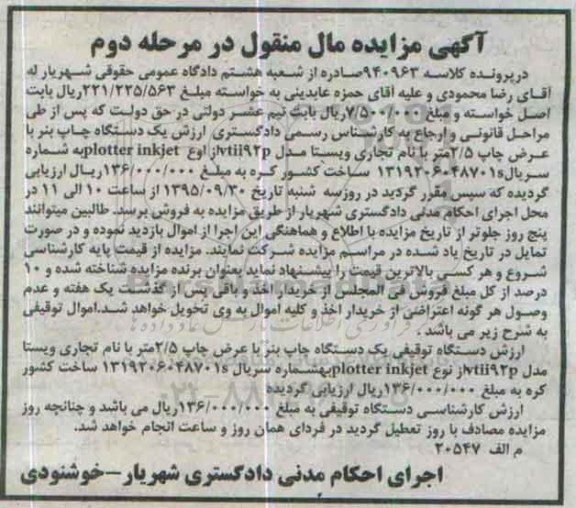 آگهی مزایده مال منقول در مرحله دوم
درپرونده کلاسه ۹۴۰۹۶۳صادره از شعبه هشتم دادگاه عمومی حقوقی شهریار له
آقـای رضا محمودی و علیه آقای حمزه عابدینی به خواسته مبلغ ۲۲۱/۲۲۵/۵۶۳ریال بابت
اصـل خواسته و مبلغ ۷/۵۰۰/۰۰۰ریال بابت نیم عشـر دولتی در حق دولـت که پس از طی
مراحـل قانونـی و ارجاع به کارشناس رسمی دادگستری ارزش یک دستگاه چـاپ بنر با
عـرض چاپ ۲/۵متر با نام تجاری ویسـتا مـدل vtii۹۲pاز نوع plotter inkjetبه شـماره
سـریال۱۳۱۹۲۰۶۰۴۸۷۰۱s سـاخت کشـور کـره به مبلـغ ۱۳۶/۰۰۰/۰۰۰ریـال ارزیابی
گردیده که سپس مقرر گردید در روزسه شنبه تاریخ ۱۳۹۵/۰۹/۳۰ از ساعت ۱۰ الی ۱۱ در
محل اجرای احکام مدنی دادگستری شهریار از طریق مزایده به فروش برسد. طالبین میتوانند
پنج روز جلوتر از تاریخ مزایده با اطلاع و هماهنگی این اجرا از اموال بازدید نموده و در صورت
تمایل در تاریخ یاد شـده در مراسـم مزایده شـرکت نمایند. مزایده از قیمت پایه کارشناسی
شـروع و هر کسـی بالاترین قیمت را پیشـنهاد نماید بعنوان برنده مزایده شناخته شده و ۱۰
درصد از کل مبلغ فروش فی المجلس از خریدار اخذ و باقی پس از گذشت یک هفته و عدم
وصول هر گونه اعتراضی از خریدار اخذ و کلیه اموال به وی تحویل خواهد شـد.اموال توقیفی
به شرح زیر می باشد .
ارزش دسـتگاه توقیفی یک دسـتگاه چاپ بنر با عرض چاپ ۲/۵متر با نام تجاری ویستا
مدل vtii۹۲pاز نوع plotter inkjetبهشـماره سریال ۱۳۱۹۲۰۶۰۴۸۷۰۱s ساخت کشور
کره به مبلغ ۱۳۶/۰۰۰/۰۰۰ریال ارزیابی گردیده
ارزش کارشناسـی دسـتگاه توقیفی به مبلغ ۱۳۶/۰۰۰/۰۰۰ریال می باشد و چنانچه روز
مزایده مصادف با روز تعطیل گردید در فردای همان روز و ساعت انجام خواهد شد.
م الف ۲۰۵۴۷
اجرای احکام مدنی دادگستری شهریار–خوشنودی